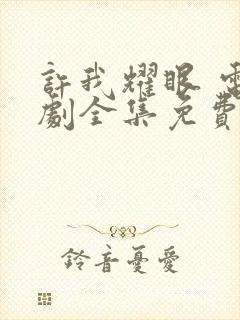 許我耀眼 電
劇全集免費
鈴音憂愛